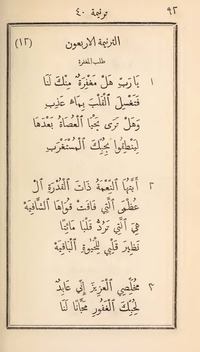 ٩٢ ترنيمة ٤٠
الترنيمة الاربعون (١٢)
طلب المغفرة
١ يَا رَبِّ هَلْ مَغْفِرَةٌ مِنْكَ لَنَا
فَتَغْسِلَ ٱلْقَلْبَ بِمَاءٍ عَذِبِ
وَهَلْ تَرَى يَحْيَا ٱلْعُصَاةُ بَعْدَهَا
لِيَنْطِقُوا بِحُبِّكَ ٱلْمُسْتَغْرَبِ
٢ أَيَّتُهَا ٱلنِّعْمَةُ ذَاتَ ٱلْقُدْرَةِ ٱلْ
عُظْمَى ٱلَّتِي فَاقَتْ قُوَاهَا ٱلشَّافِيَهْ
هِيَ ٱلَّتِي تَرُدُّ قَلْبًا مَائِتًا
نَظِيرَ قَلْبِي لِلْحَيٰوةِ ٱلْبَاقِيَهْ
٣ مُخَلِّصِي ٱلْعَزِيزَ إِنِّي عَابِدٌ
لِحُبِّكَ ٱلْغَفُورِ مَجَّانًا لَنَا